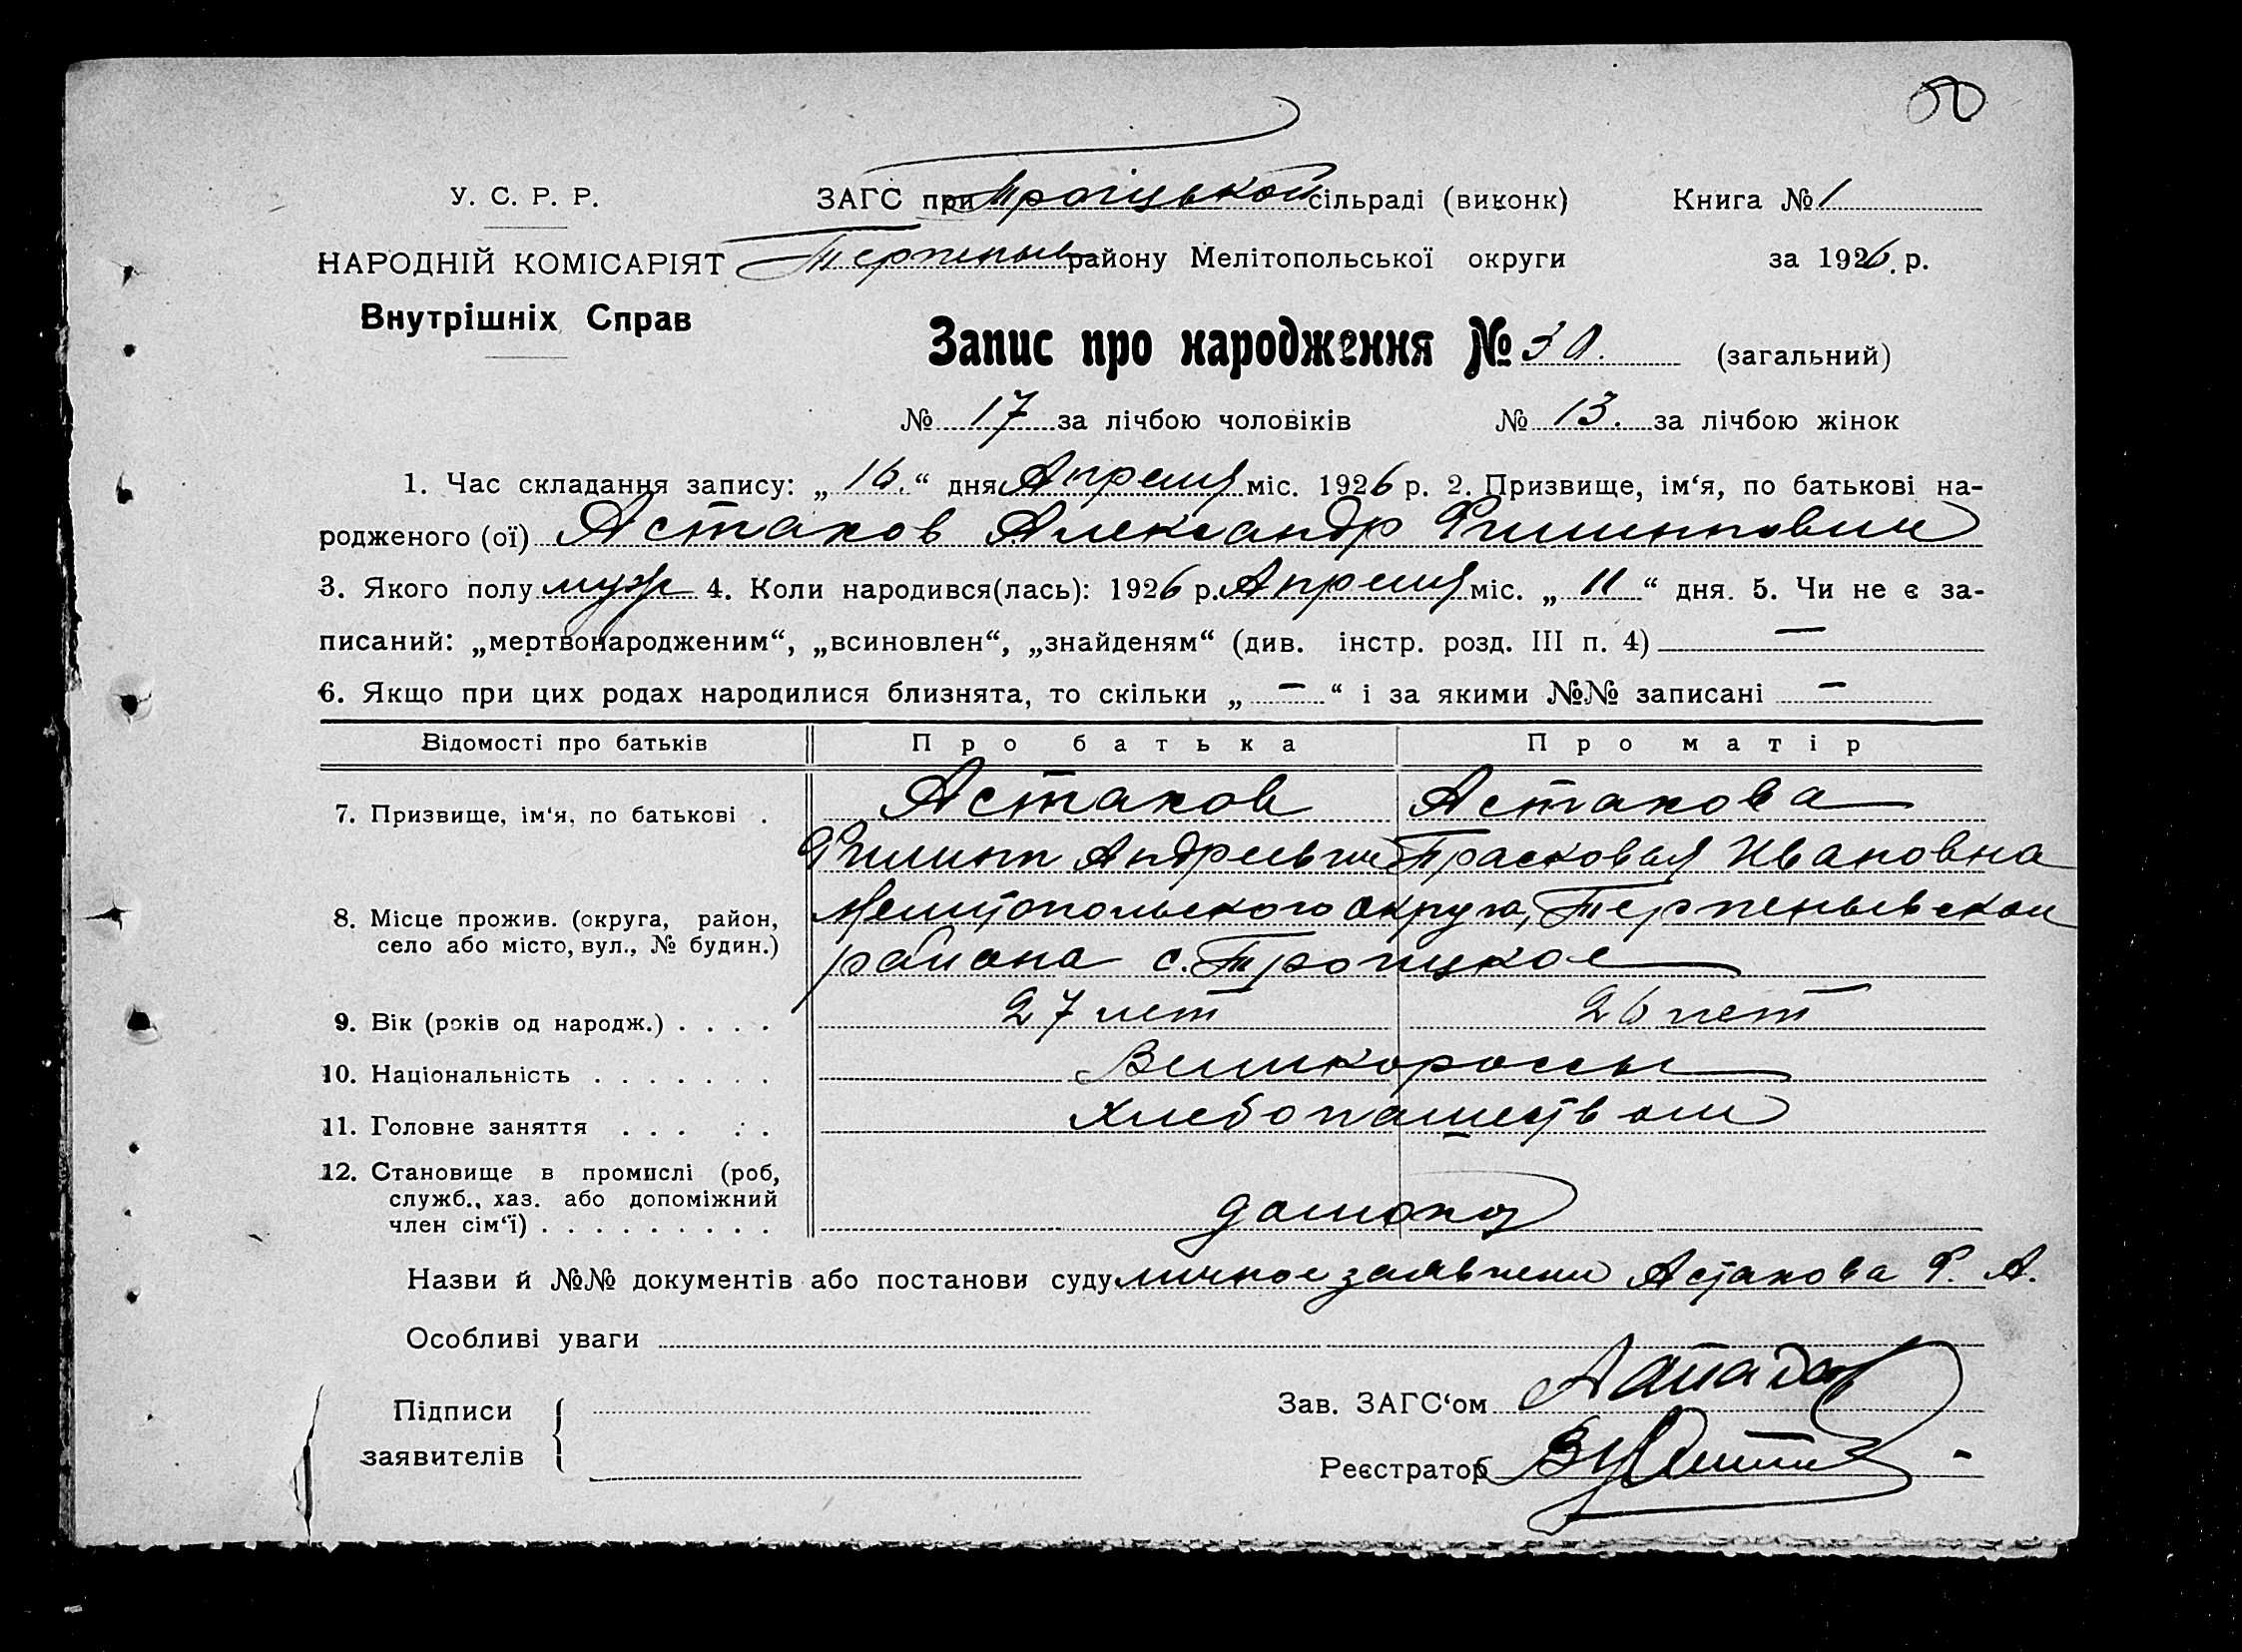 50
У. С. Р. Р. ЗАГС при Троіцькой сільраді (виконк) Книга № 1
НАРОДНІЙ КОМІСАРІЯТ Терпеньев району Мелітопольської округи за 1926. р.
Внутрішніх Справ
Запис про народження № 30. (загальний)
№ 17 за лічбою чоловіків № 13. за лічбою жінок
1. Час складання запису: „16.“ дня Апреля міс. 1926 р. 2. Призвище, ім‘я, по батькові на-
родженого (ої) Астахов Александр Филиппович
3. Якого полу муж 4. Коли народився(лась): 1926 р. Апреля міс. „11“ дня. 5. Чи не є за-
писаний: „мертвонародженим“, „всиновлен“, „знайденям“ (див. інстр. розд. III п. 4) —
6. Якщо при цих родах народилися близнята, то скільки „—“ і за якими №№ записані —
Відомості про батьків Про батька Про матір
7. Призвище, ім‘я, по батькові . Астахов Астахова
Филипп Андреевич Прасковья Ивановна
8. Місце прожив. (округа, район, Мелитопольского округа, Терпеньевскаи
село або місто, вул., № будин.) района с. Троицкое
9. Вік (років од народж.) . . . . 27 лет 26 лет
10. Національність . . . . . . . Великороссы
11. Головне заняття . . . . . Хлебопашеством
12. Становище в промислі (роб,
служб., хаз. або допоміжний
член сім‘ї) . . . . . . . . .
Назви й №№ документів або постанови суду личное заявлени Астахова Ф. А.
Особливі уваги
Підписи Зав. ЗАГС‘ом
заявителів Реєстратор